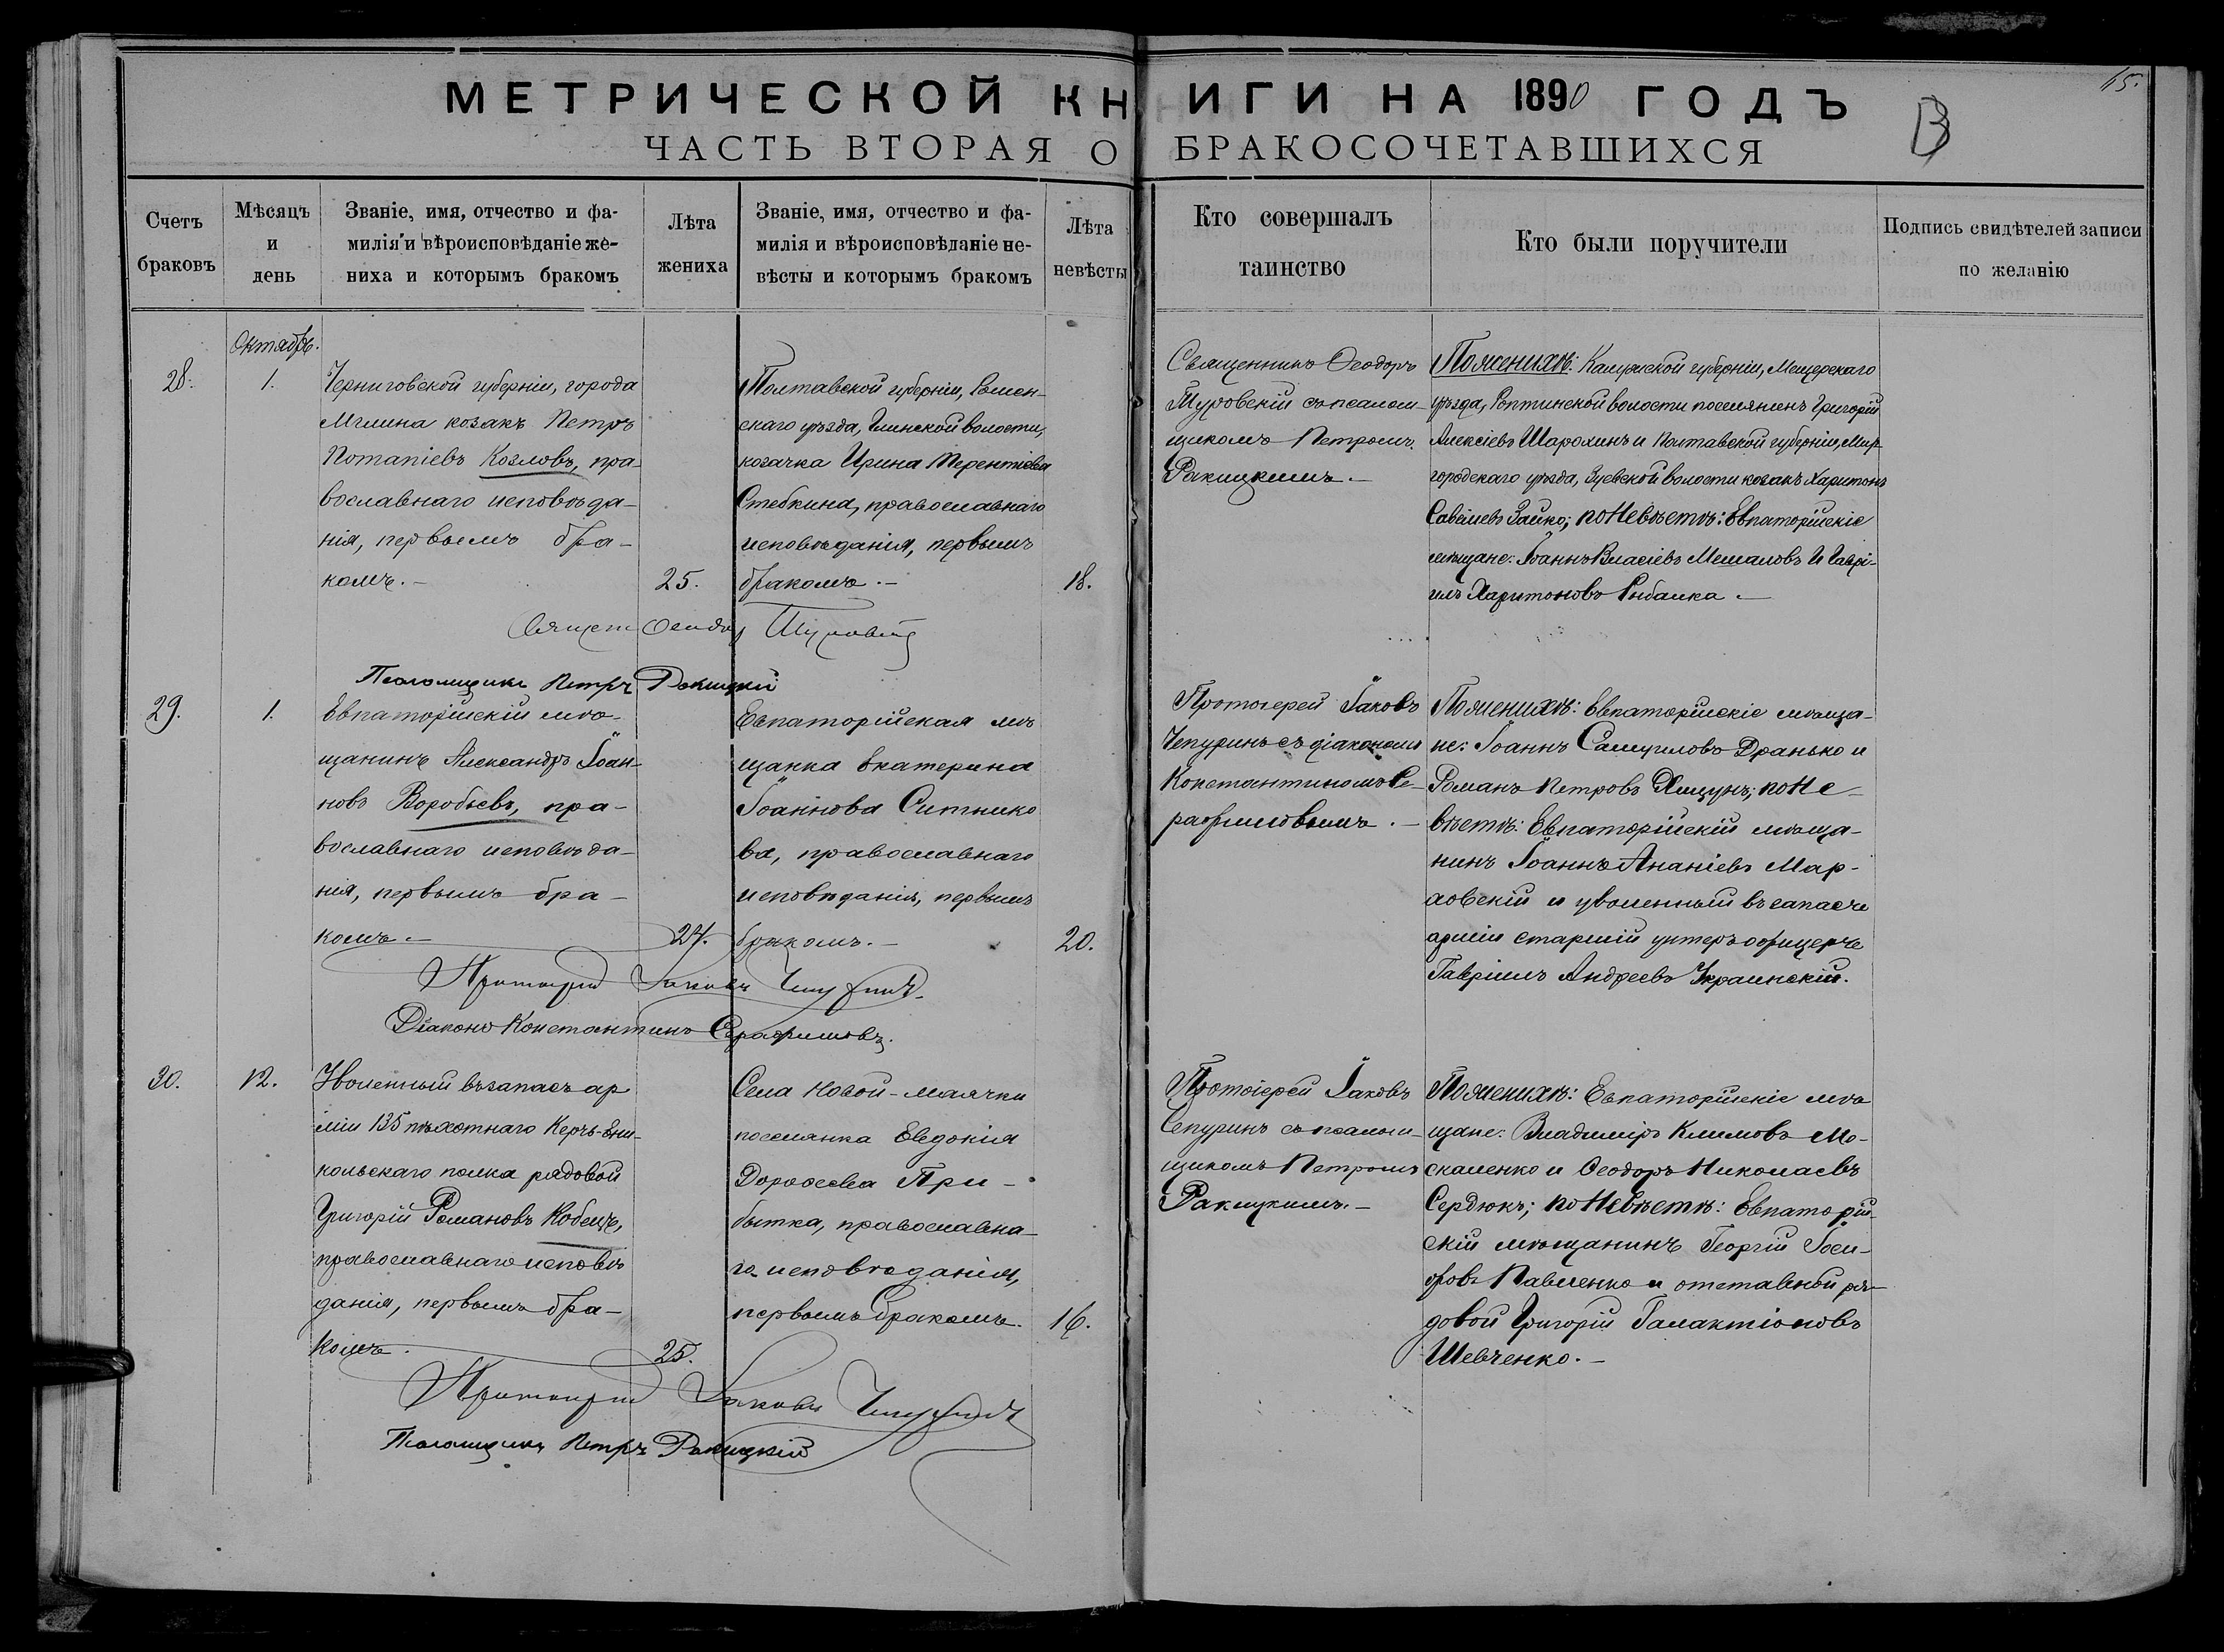 15.
МЕТРИЧЕСКОЙ КНИГИ НА 1890 ГОДЪ
В
ЧАСТЬ ВТОРАЯ О БРАКОСОЧЕТАВШИХСЯ
Счетъ
браковъ
Мѣсяцъ
и
день
Званіе, имя, отчество и фа-
милія и вѣроисповѣданіе же-
ниха и которымъ бракомъ
Лѣта
жениха
Званіе, имя, отчество и фа-
милія и вѣроисповѣданіе не-
вѣсты и которымъ бракомъ
Лѣта
невѣсты
Кто совершалъ
таинство
Кто были поручители
Подпись свидѣтелей записи
по желанію
Октябрь.
28.
1.
Черниговской губерніи, города
Мглина козакъ Петръ
Потапіевъ Козловъ, пра-
вославнаго исповѣда-
нія, первымъ бра-
комъ.-
25.
Полтавской губерніи, Ромен-
скаго уѣзда, Глинской волости,
козачка Ирина Терентіева
Стебкина, православнаго
исповѣданія, первымъ
бракомъ.-
18.
Священникъ Ѳеодоръ
Туровскій съ псалом-
щикомъ Петромъ
Ракицкимъ.-
По женихѣ: Калужской губерніи, Мещерскаго
уѣзда, волости поселянинъ Григорій
Алексіевъ Шарохинъ и Полтавской губерніи, Мир-
городскаго уѣзда, Зуевской волости козакъ Харитонъ
Савеліевъ Зайко; по невѣстѣ: Евпаторійскіе
мѣщане: Іоаннъ Власіевъ Мешаловъ и Гаврі-
илъ Харитоновъ Рыбалка.-
Священ Ѳеодор Туровскій
Псаломщикъ Петръ Ракицкій
29.
1.
Евпаторійскій мѣ-
щанинъ Александръ Іоан-
новъ Воробьевъ, пра-
вославнаго исповѣда-
нія, первымъ бра-
комъ.-
24.
Евпаторійская мѣ
щанка Екатерина
Іоаннова Ситнико
ва, православнаго
исповѣданія, первымъ
бракомъ.-
20.
Протоіерей Іаковъ
Чепуринъ съ діакономъ
Константиномъ Се-
рафимовымъ.-
По женихѣ: Евпаторійскіе мѣща-
не: Іоаннъ Самуиловъ Дранько и
Романъ Петровъ; по не-
вѣстѣ: Евпаторійскій мѣща-
нинъ Іоаннъ Ананіевъ Мар-
ховскій и уволенный въ запасъ
арміи старшій унтеръ офицеръ
Гавріилъ Андреевъ Украинскій.
Протоіерей Іаковъ Чепуринъ.
Діаконъ Константинъ Серафимовъ.
30.
12.
Уволенный въ запасъ ар
міи 135 пѣхотнаго Керчь-Ени-
кольскаго полка рядовой
Григорій Романовъ Кобецъ,
православнаго исповѣ
данія, первымъ бра-
комъ.
25.
Села Новой-Маячки
поселянка Евдокія
Дороѳеева При-
бытка, православна-
го исповѣданія,
первымъ бракомъ.
16.
Протоіерей Іаковъ
Чепуринъ съ псалом-
щикомъ Петромъ
Ракицкимъ.-
По женихѣ: Евпаторійскіе мѣ
щане: Владиміръ Климовъ Мо-
скаленко и Ѳеодоръ Николаевъ
Сердюкъ; по невѣстѣ: Евпаторій-
скій мѣщанинъ Георгій Іоси-
фовъ Павленко и отставной ря-
довой Григорій Галактіоновъ
Шевченко.-
Протоіерей Іаковъ Чепуринъ
Псаломщикъ Петръ Ракицкій